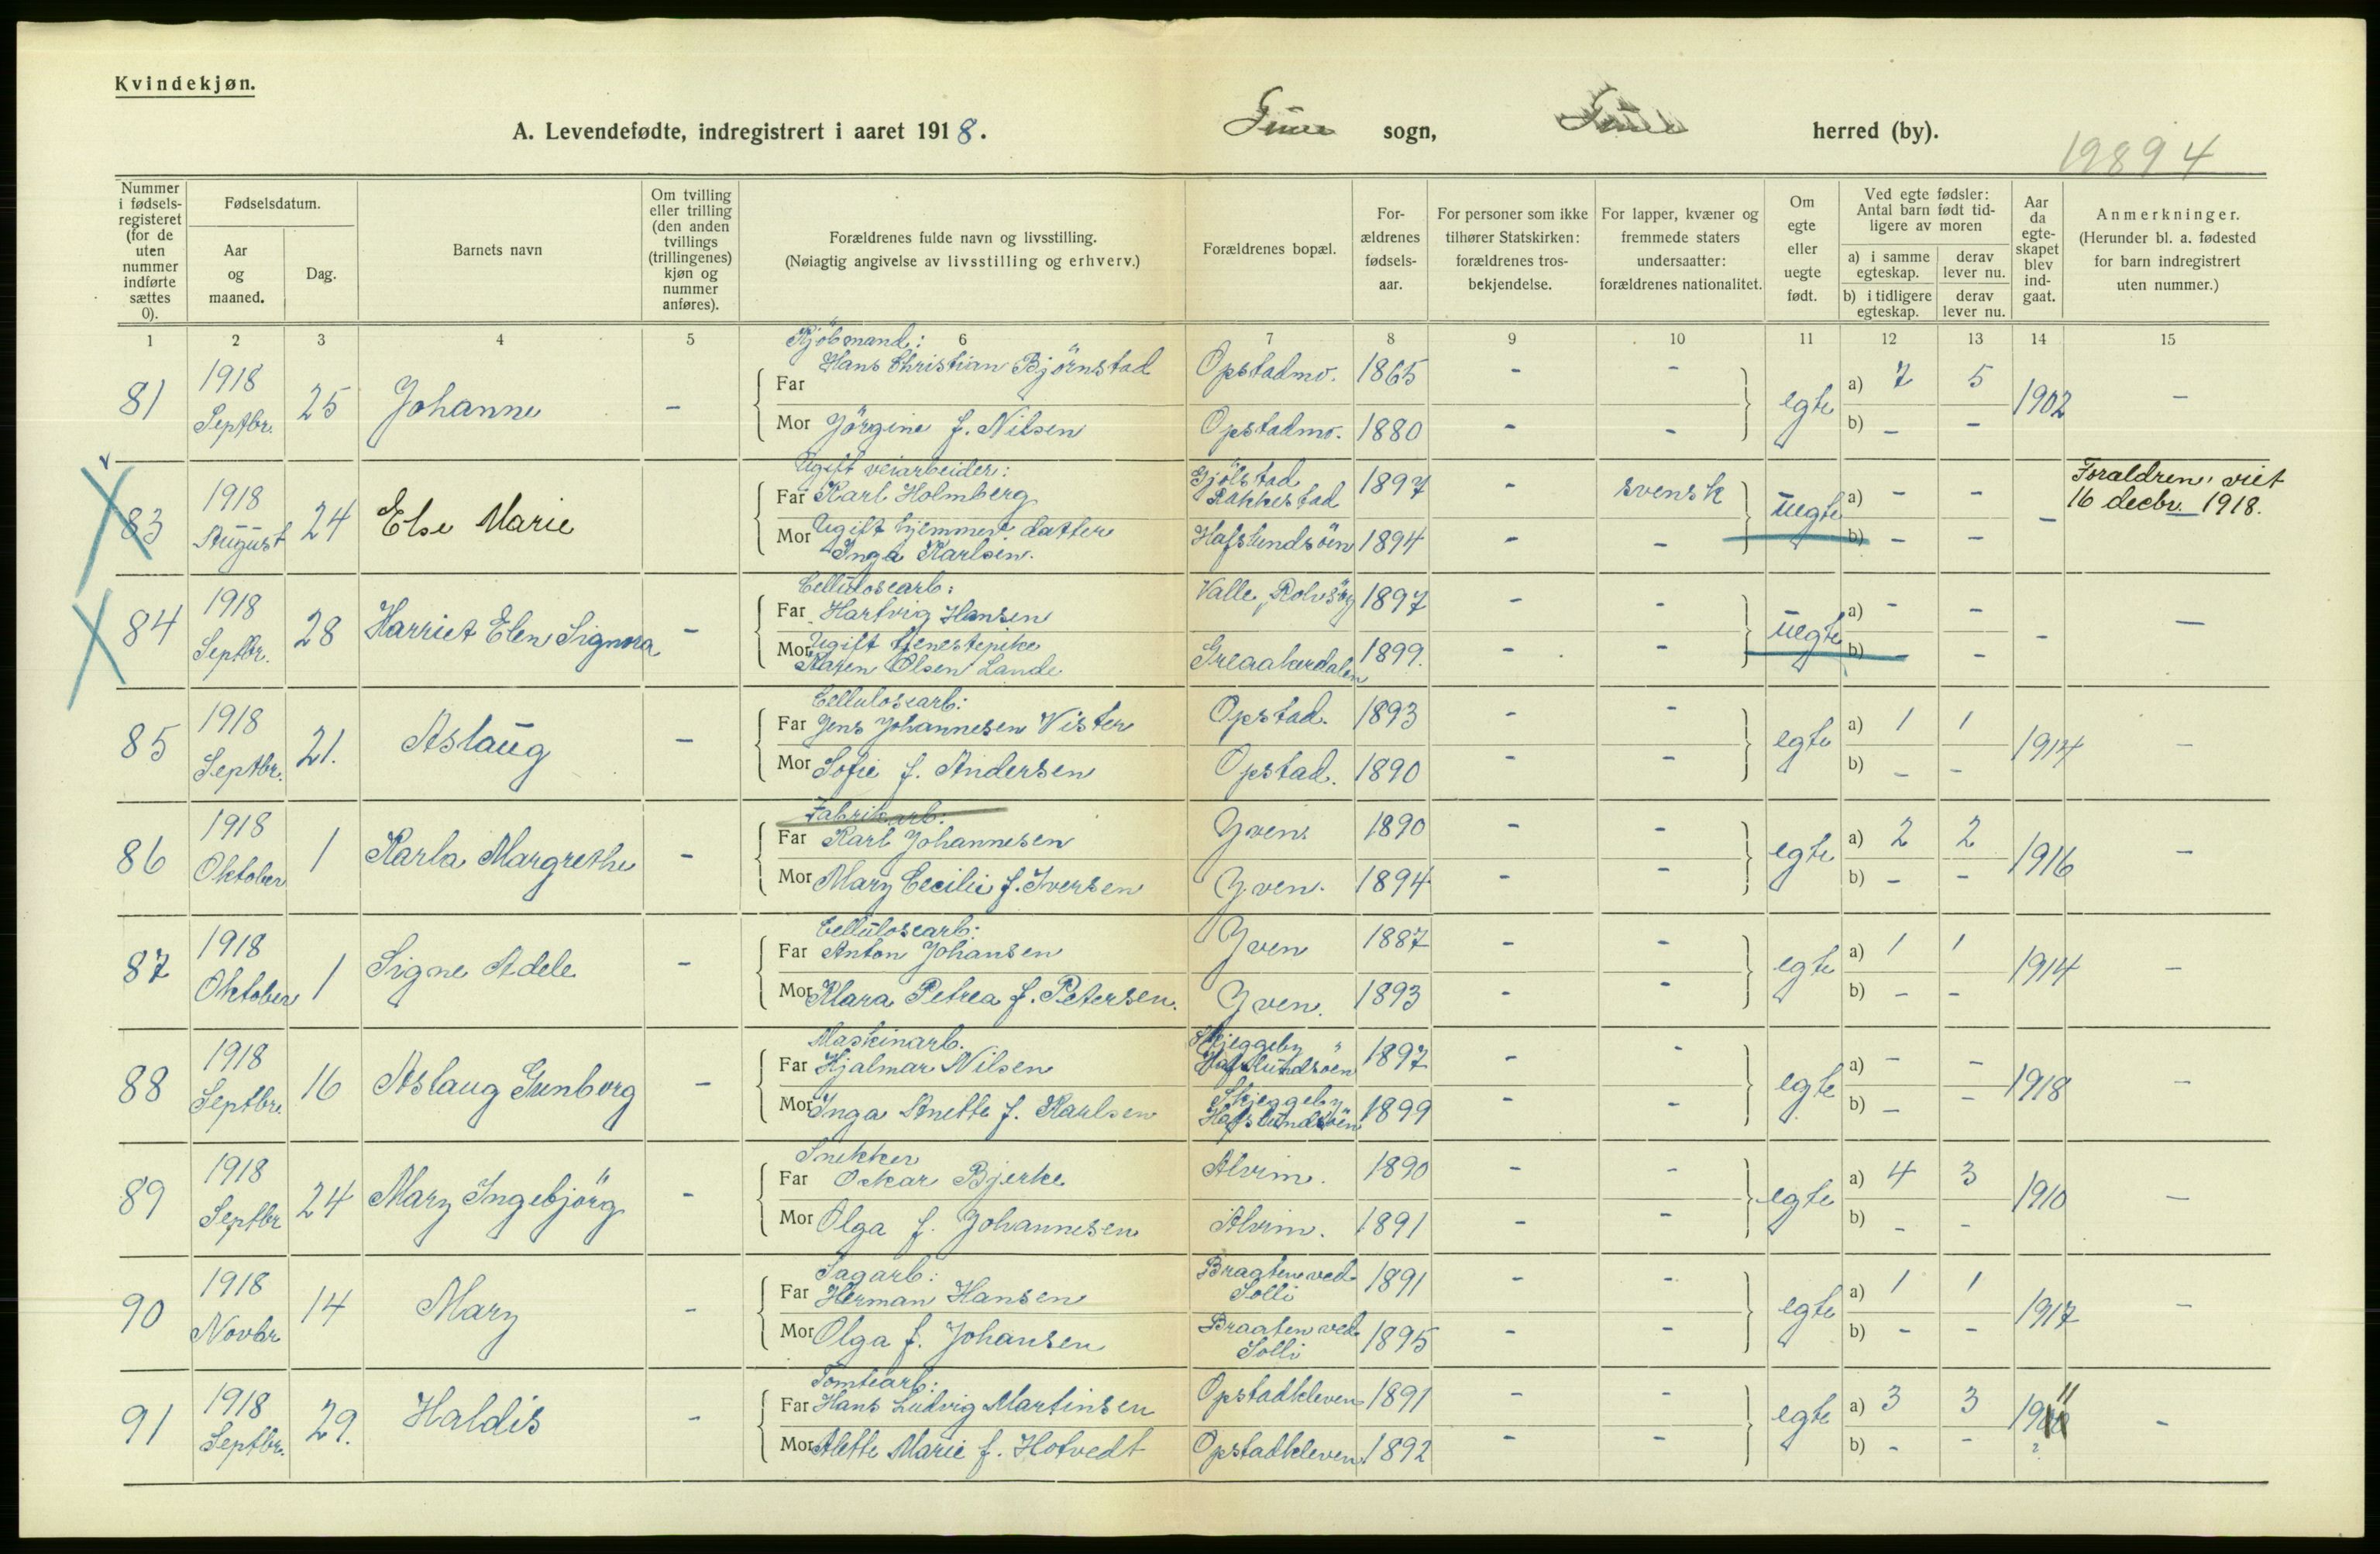 Kvindekjøn.
A. Levendefødte, indregistrert i aaret 1918.
sogn,
herred (by).
19894
Nummer i fødselsregisteret (for de uten nummer indførte sættes 0).
Fødselsdatum.
Aar og maaned.
Dag.
Barnets navn
Om tvilling eller trilling (den anden tvillings (trillingenes) kjøn og nummer anføres).
Forældrenes fulde navn og livsstilling.
(Nøiagtig angivelse av livsstilling og erhverv.)
Forældrenes bopæl.
For-ældrenes fødsels-aar.
For personer som ikke tilhører Statskirken: forældrenes tros-bekjendelse.
For lapper, kvæner og fremmede staters undersaatter: forældrenes nationalitet.
Om egte eller uegte født.
Ved egte fødsler: Antal barn født tid-ligere av moren
a) i samme egteskap.
derav lever nu.
b) i tidligere egteskap.
derav lever nu.
Aar da egte-skapet blev ind-gaat.
Anmerkninger.
(Herunder bl. a. fødested for barn indregistrert uten nummer.)
1 2 3 4 5 6 7 8 9 10 11 12 13 14 15
Kjöbmand:
81 1918 Septbr. 25 Johanne - Far Hans Christian Björnstad Opstadmo. 1865 - - egte a) 7 5 1902 -
Mor Jörgine f. Nilsen Opstadmo. 1880 - - b) - -
Ugift veiarbeider:
83 1918 August 24 Else Marie Far Karl Holmberg Gjölstad Rakkestad 1897 - svensk uegte a) - - - Foraldrene viet 16 decbr. 1918.
Mor Ugift hjemmev. datter Inga Karlsen. Hafslundsöen 1894 - - b) - -
Cellulosearb:
84 1918 Septbr. 28 Harriet Elen Signora - Far Hartvig Hansen Valle, Rolvsöy 1897 - - uegte a) - - - -
Mor Ugift tjenestepike Karen Olsen Lande Greaakerdalen 1899. - - b) - -
Cellulosearb:
85 1918 Septbr. 21. Aslaug - Far Jens Johannesen Vister Opstad. 1893 - - egte a) 1 1 1914 -
Mor Sofie f. Andersen Opstad. 1890 - - b) - -
Fabrikarb:
86 1918 Oktober 1 Karla Margrethe - Far Karl Johannesen Yven. 1890 - - egte a) 2 2 1916 -
Mor Mary Cecilie f. Iversen Yven. 1894 - - b) - -
Cellulosearb:
87 1918 Oktober 1 Signe Adele - Far Anton Johansen Yven 1887 - - egte a) 1 1 1914 -
Mor Klara Petrea f. Petersen. Yven. 1893 - - b) - -
Maskinarb.
88 1918 Septbr. 16 Aslaug Gunborg - Far Hjalmar Nilsen Skjeggeby Hafslundsöen 1897 - - egte a) - - 1918 -
Mor Inga Anette f. Karlsen Skjeggeby Hafslundsöen 1899 - - b) - -
Snekker
89 1918 Septbr 24 Mary Ingebjörg - Far Oskar Bjerke Alvim. 1890 - - egte a) 4 3 1910 -
Mor Olga f. Johannesen Alvim. 1891 - - b) - -
Sagarb:
90 1918 Novbr 14 Mary - Far Herman Hansen Braaten ved Solli 1891 - - egte a) 1 1 1917 -
Mor Olga f. Johansen Braaten ved Solli 1895 - - b) - -
Tomtearb:
91 1918 Septbr. 29. Haldis - Far Hans Ludvig Martinsen Opstadkleven 1891 - - egte a) 3 3 1911 -
Mor Alette Marie f. Hotvedt Opstadkleven 1892 - - b) - - ?